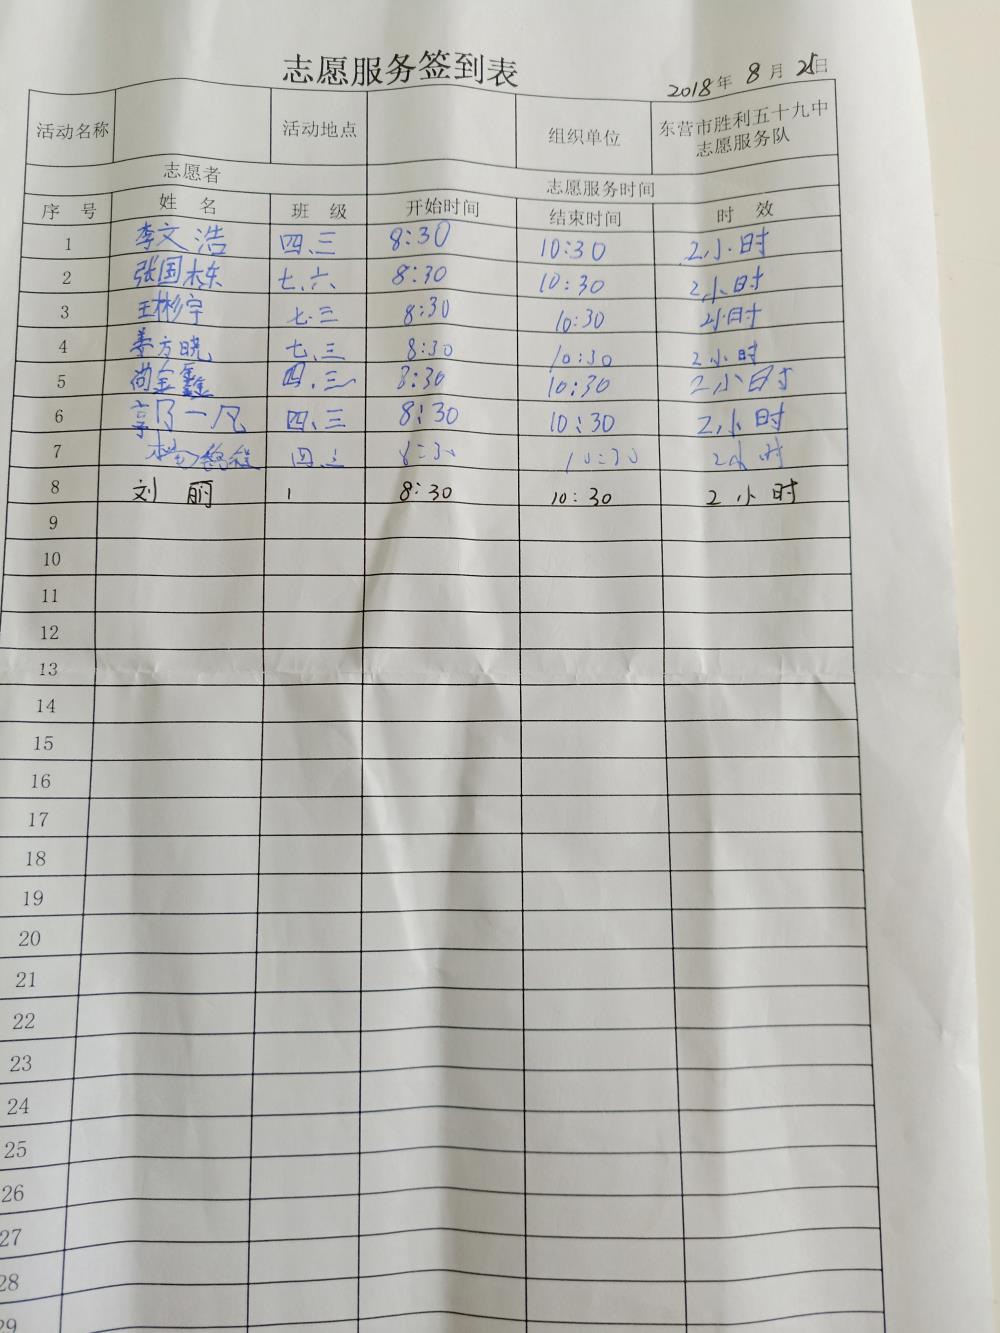 志愿服务签到表
2018年 8月 25日
活动名称 活动地点 组织单位 东营市胜利五十九中
志愿服务队
志愿者 志愿服务时间
序 号 姓 名 班 级 开始时间 结束时间 时 效
1 李文浩 四.三 8:30 10:30 2小时
2 张国栋 七.六 8:30 10:30 2小时
3 王彬宇 七.三 8:30 10:30 2小时
4 方晓 七.三 8:30 10:30 2小时
5 尚金鑫 四.三 8:30 10:30 2小时
6 郭一凡 四.三 8:30 10:30 2小时
7 四.三 8:30 10:30 2小时
8 刘 丽 8:30 10:30 2小时
9
10
11
12
13
14
15
16
17
18
19
20
21
22
23
24
25
26
27
28
29